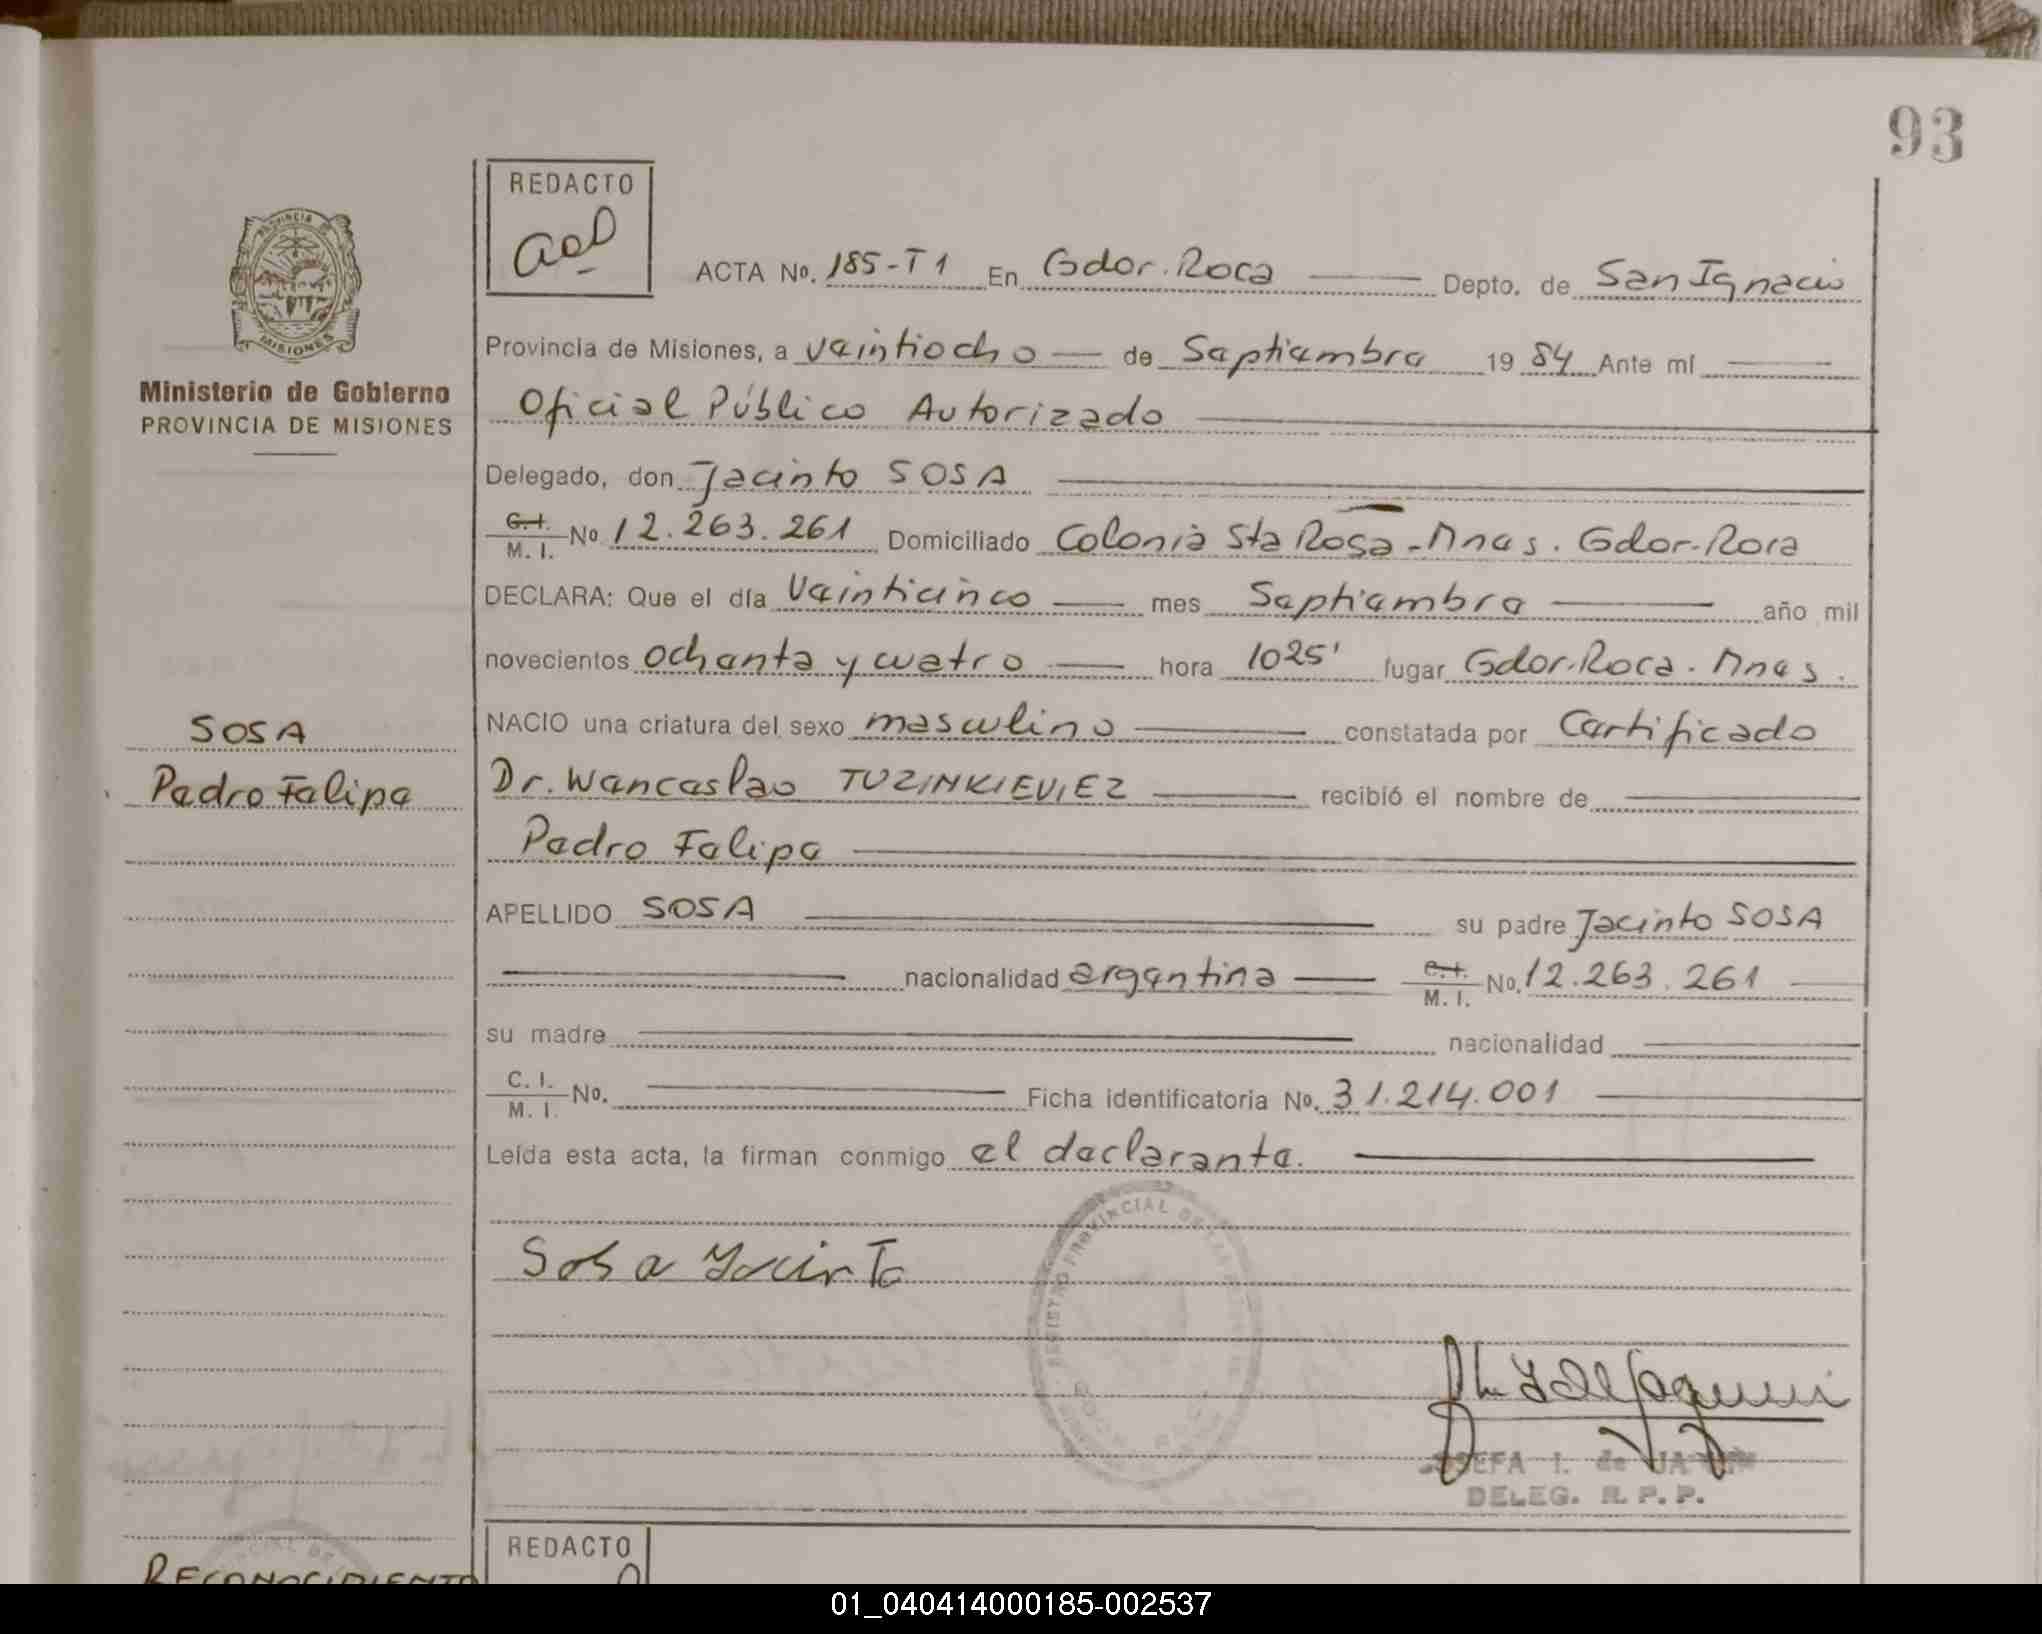 93
REDACTO
ACTA No. 185-T1 En Gdor. Roca Depto. de San Ignacio
Provincia de Misiones, a veintiocho de Septiembre 1984 Ante mí
Oficial Público Autorizado
Delegado, don Jacinto SOSA
C.I. M. I. No 12.263.261 Domiciliado Colonia Sta Rosa - Mnes. Gdor-Roca
DECLARA: Que el día Veinticinco mes Septiembre año mil
novecientos ochenta y cuatro hora 1025' lugar Gdor. Roca. Mnes.
NACIO una criatura del sexo masculino constatada por Certificado
Dr. Wenceslao TUZINKIEVIEZ recibió el nombre de
Pedro Felipe
APELLIDO SOSA su padre Jacinto SOSA
nacionalidad argentina C.I. M. I. No. 12.263.261
su madre nacionalidad
C. I. M. I. No. Ficha identificatoria No. 31.214.001
Leída esta acta, la firman conmigo el declarante.
Sosa Jacinto
DELEG. R. P. P.
PROVINCIA DE
MISIONES
Ministerio de Gobierno
PROVINCIA DE MISIONES
SOSA
Pedro Felipe
RECONOCIMIENTO
REDACTO
01_040414000185-002537